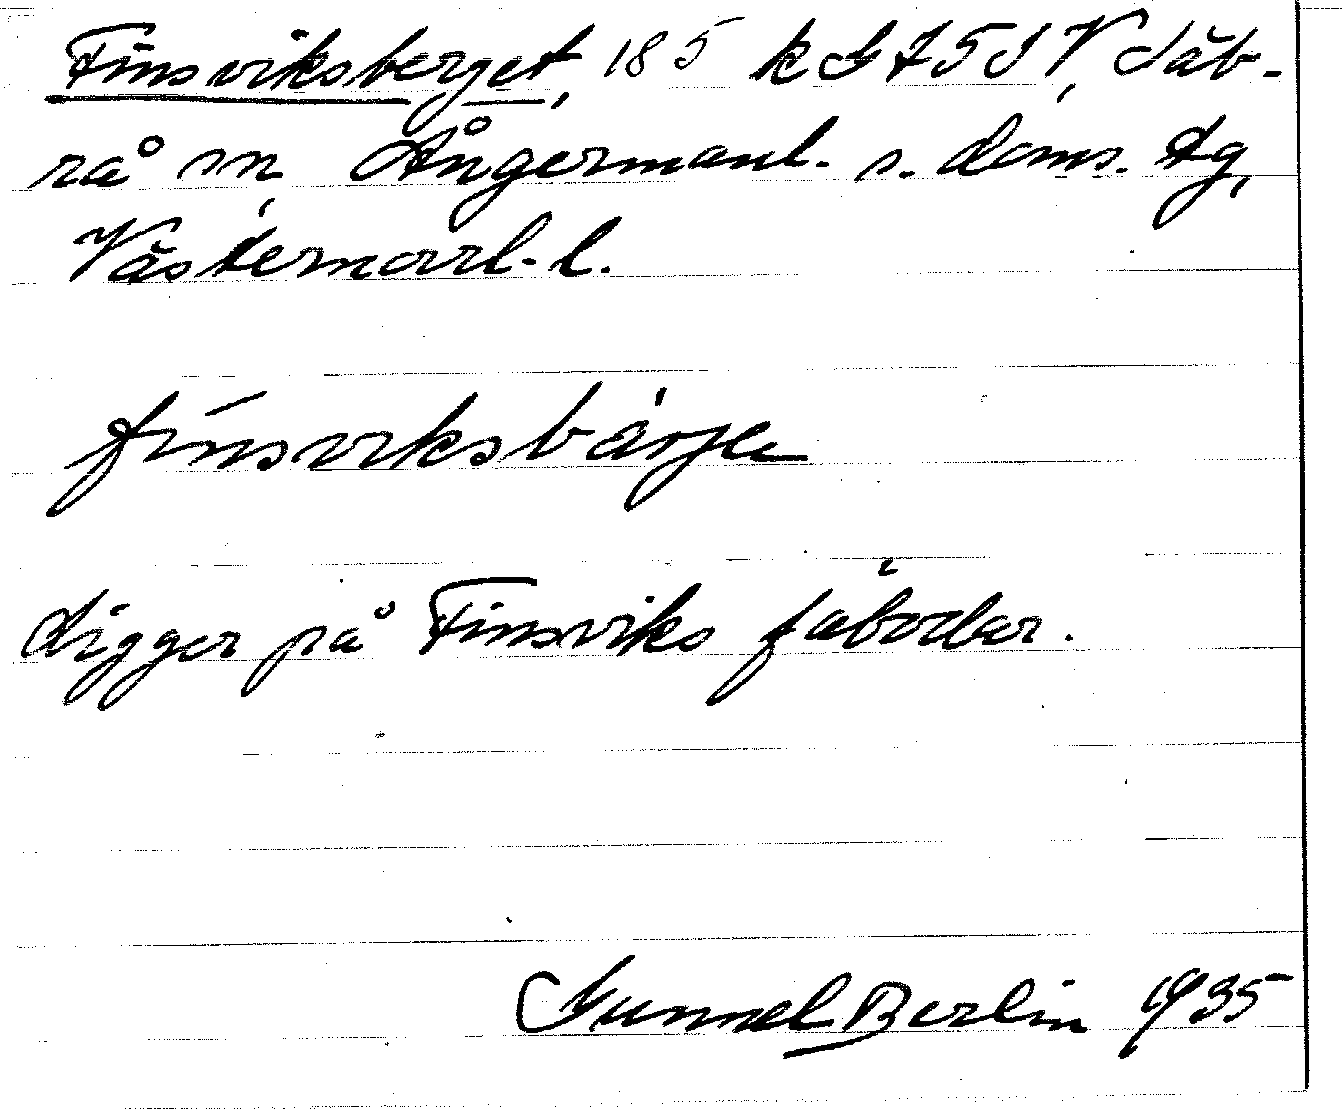 Finsviksberget, 185 k G 7 5 I V, Säb-
rå sn, Ångermanl. s. doms. dg,
Västernorrl. l.
finsviksbärje
Ligger på Finsviks fäbodar.
Gunnel Berlin 1935